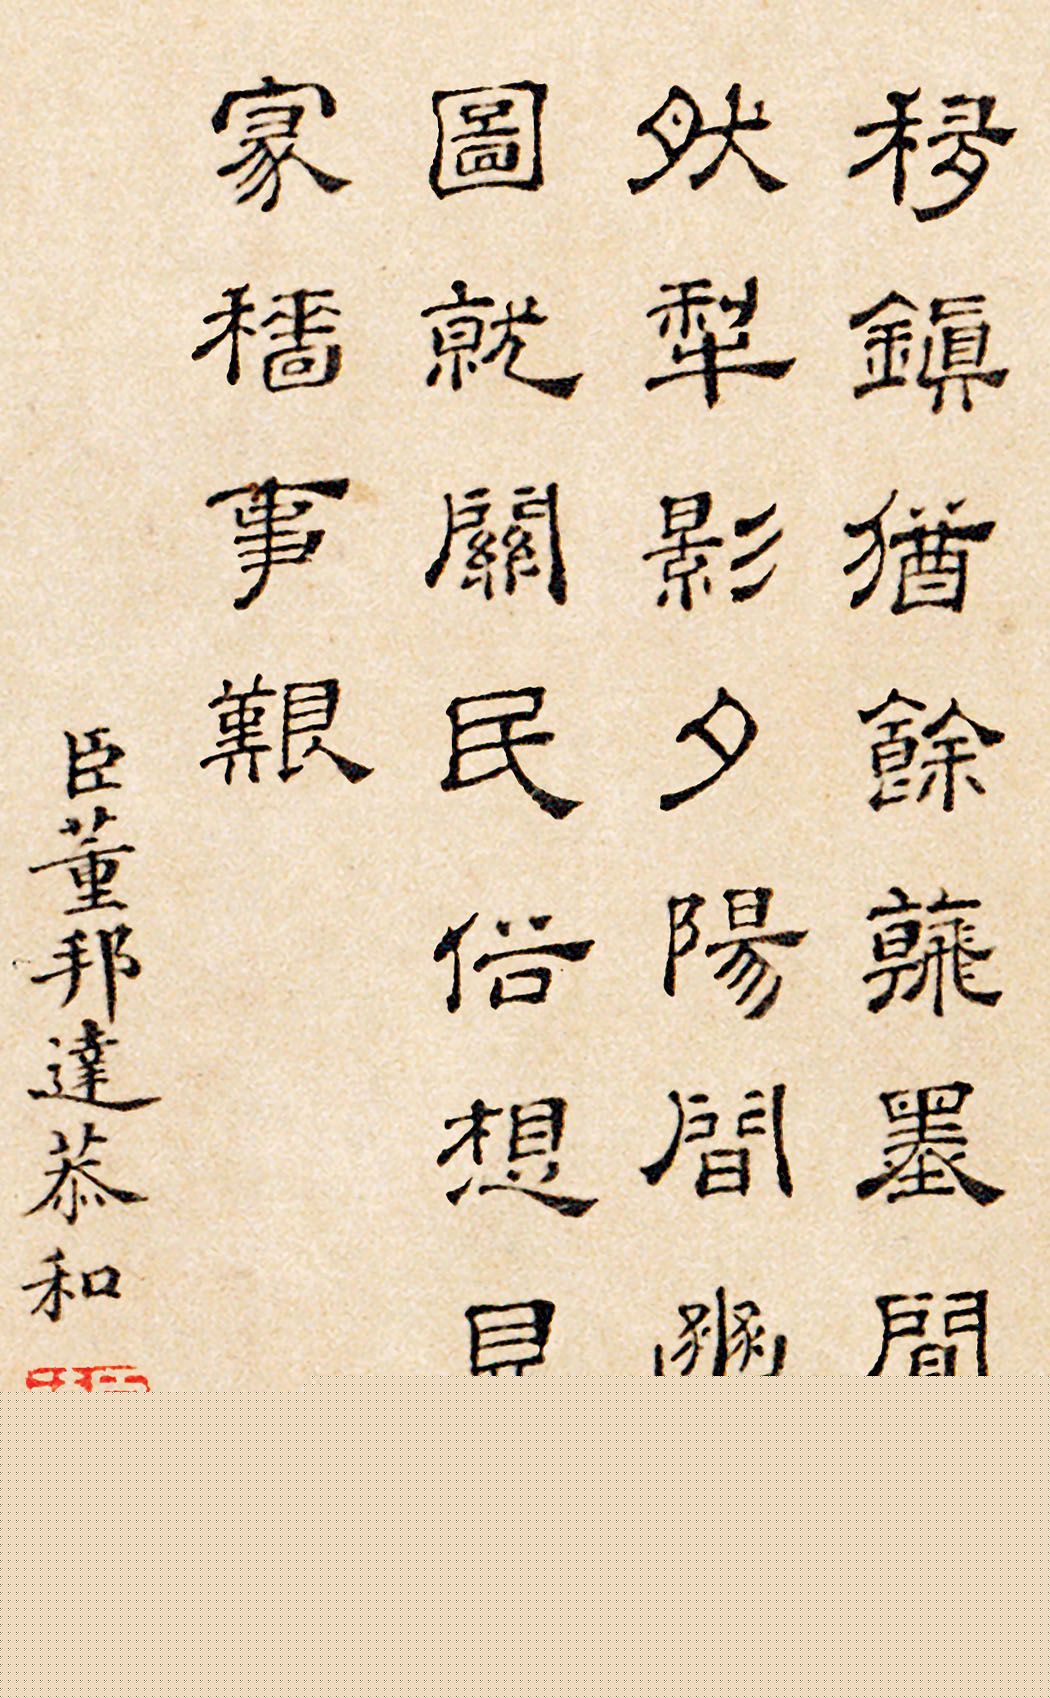 移鎮猶餘墨間
然犁影夕陽間豳
圖就關民俗想見
家穡事艱
臣董邦達恭和